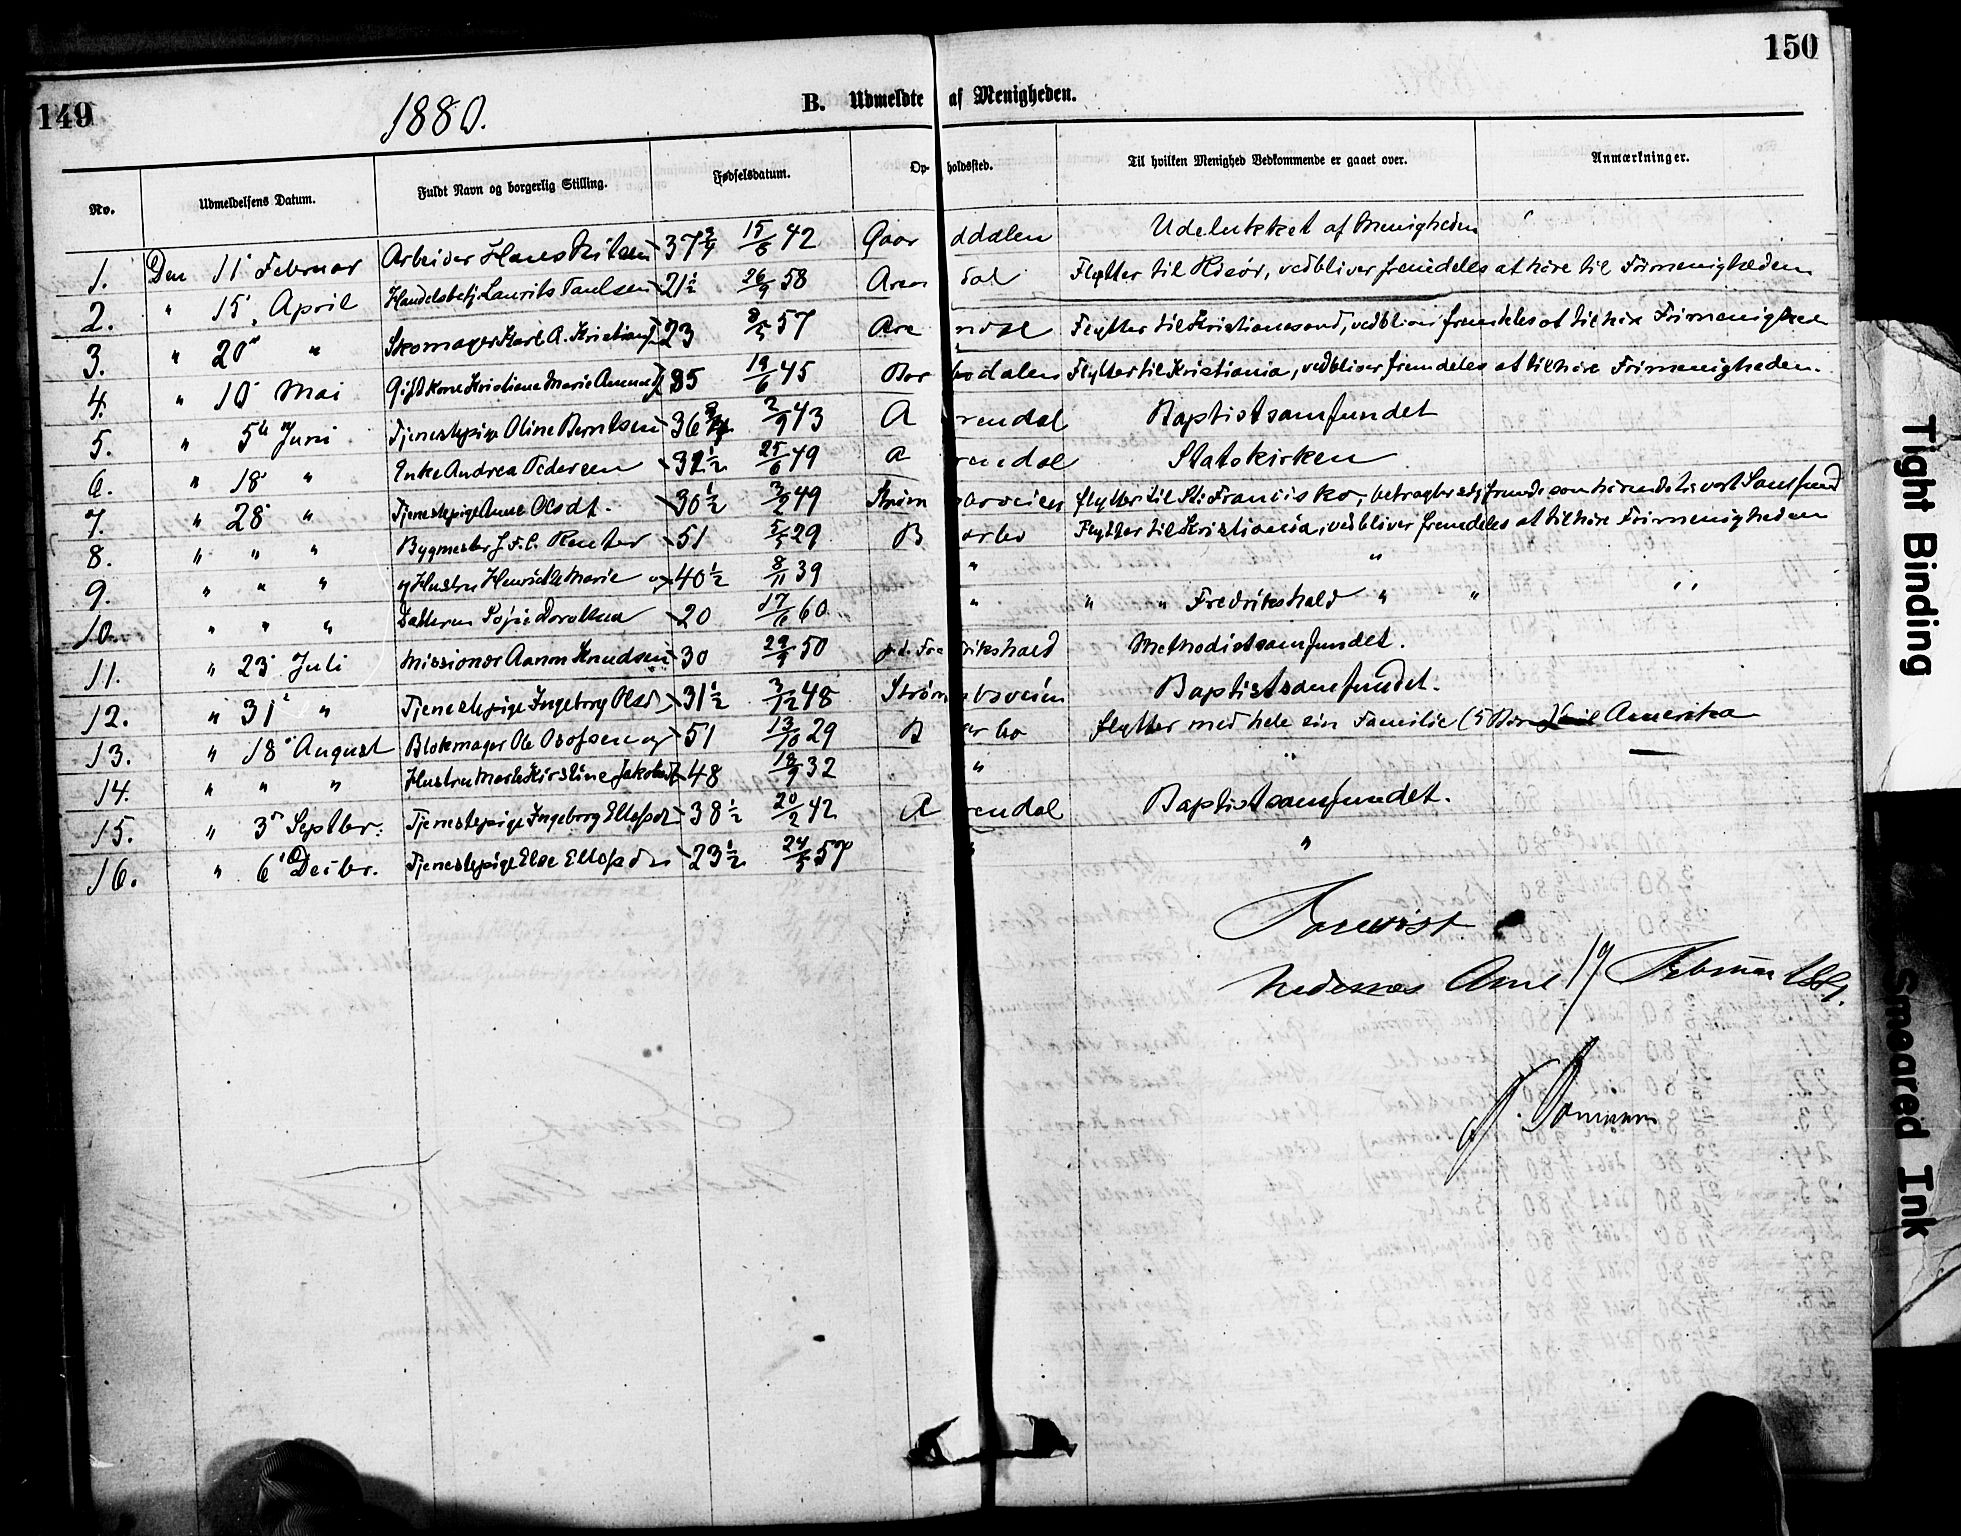 149
150
1880.
B. Udmeldte af Menigheden.
No. Udmeldelsens Datum. Fuldt Navn og borgerlig Stilling. Fødselsdatum. Opholdssted. Til hvilken Menighed Vedkommende er gaaet over. Anmærkninger.
1. Den 11 Februar Arbeider Hans Nilsen 37 3/4 15/5 42 ddalen Udelukket af Menigheden
2. " 15 April Handelsbetj Laurits Paulsen 21 1/2 26/9 58 dal Flytter til Risør, vedbliver fremdeles at høre til Frimenigheden
3. " 20 " Skomager Karl A. 23 8/5 57 Are ndal Flytter til Kristianssand, vedbliver fremdeles at tilhøre Frimenigheden
4. " 10 Mai Gift Kone Kristiane Marie 35 19/6 45 dalen Flytter til Kristiania, vedbliver fremdeles at tilhøre Frimenigheden.
5. " 5 Juni Tjenestepige Oline Berntsen 36 3/4 2/9 43 A rendal Baptistsamfundet
6. " 18 " Enke Andrea Pedersen 25/6 49 A rendal Statskirken
7. " 28 " Tjenestepige Anne Olsdt. 30 1/2 49 Strøm sboveien flytter til St. Francisko, betragter sig som hørende til vort Samfund
8. " " " Bygmester J. F. C. Reuter 51 5/5 29 B arbo Flytter til Kristiania, vedbliver fremdeles at tilhøre Frimenigheden
9. " " " og Hustru Marie og 40 1/2 8/11 39 " "
10. " " " Datteren Sofie Dorothea 20 17/6 60 " " " Fredrikshald " " "
11. " 23 Juli Missionær Aanon Knudsen 30 29/9 50 p.t. Fre drikshald Methodistsamfundet.
12. " 31 " Tjenestepige Ingeborg Olsd. 31 1/2 3/12 48 Strøm sboveien Baptistsamfundet.
13. " 18 August Blokmager Ole Olofsen og 51 13/10 29 B arbo flytter med hele sin Familie (5 Børn) til Amerika
14. " " " Hustru Kirstine 48 18/9 32 " "
15. " 3 Septbr. Tjenestepige Ingeborg Ellefsdt 38 1/2 20/2 42 A rendal Baptistsamfundet.
16. " 6 Decbr. Tjenestepige Else Ellefsd 23 1/2 24/5 57 " "
Forevist
Nedenæs Amt 19 Februar 1881.
Tight Binding
Smeared Ink